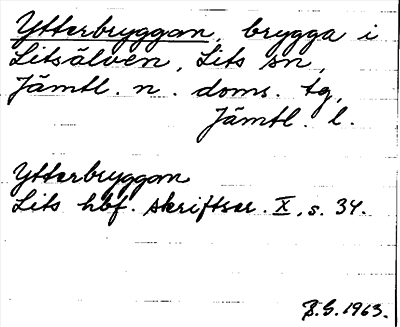 Ytterbryggan, brygga i
Litsälven, Lits sn,
Jämtl. n. doms. tg,
Jämtl. l.
Ytterbryggan
Lits hbf. skriftser. X, s. 34.
B.G. 1963.